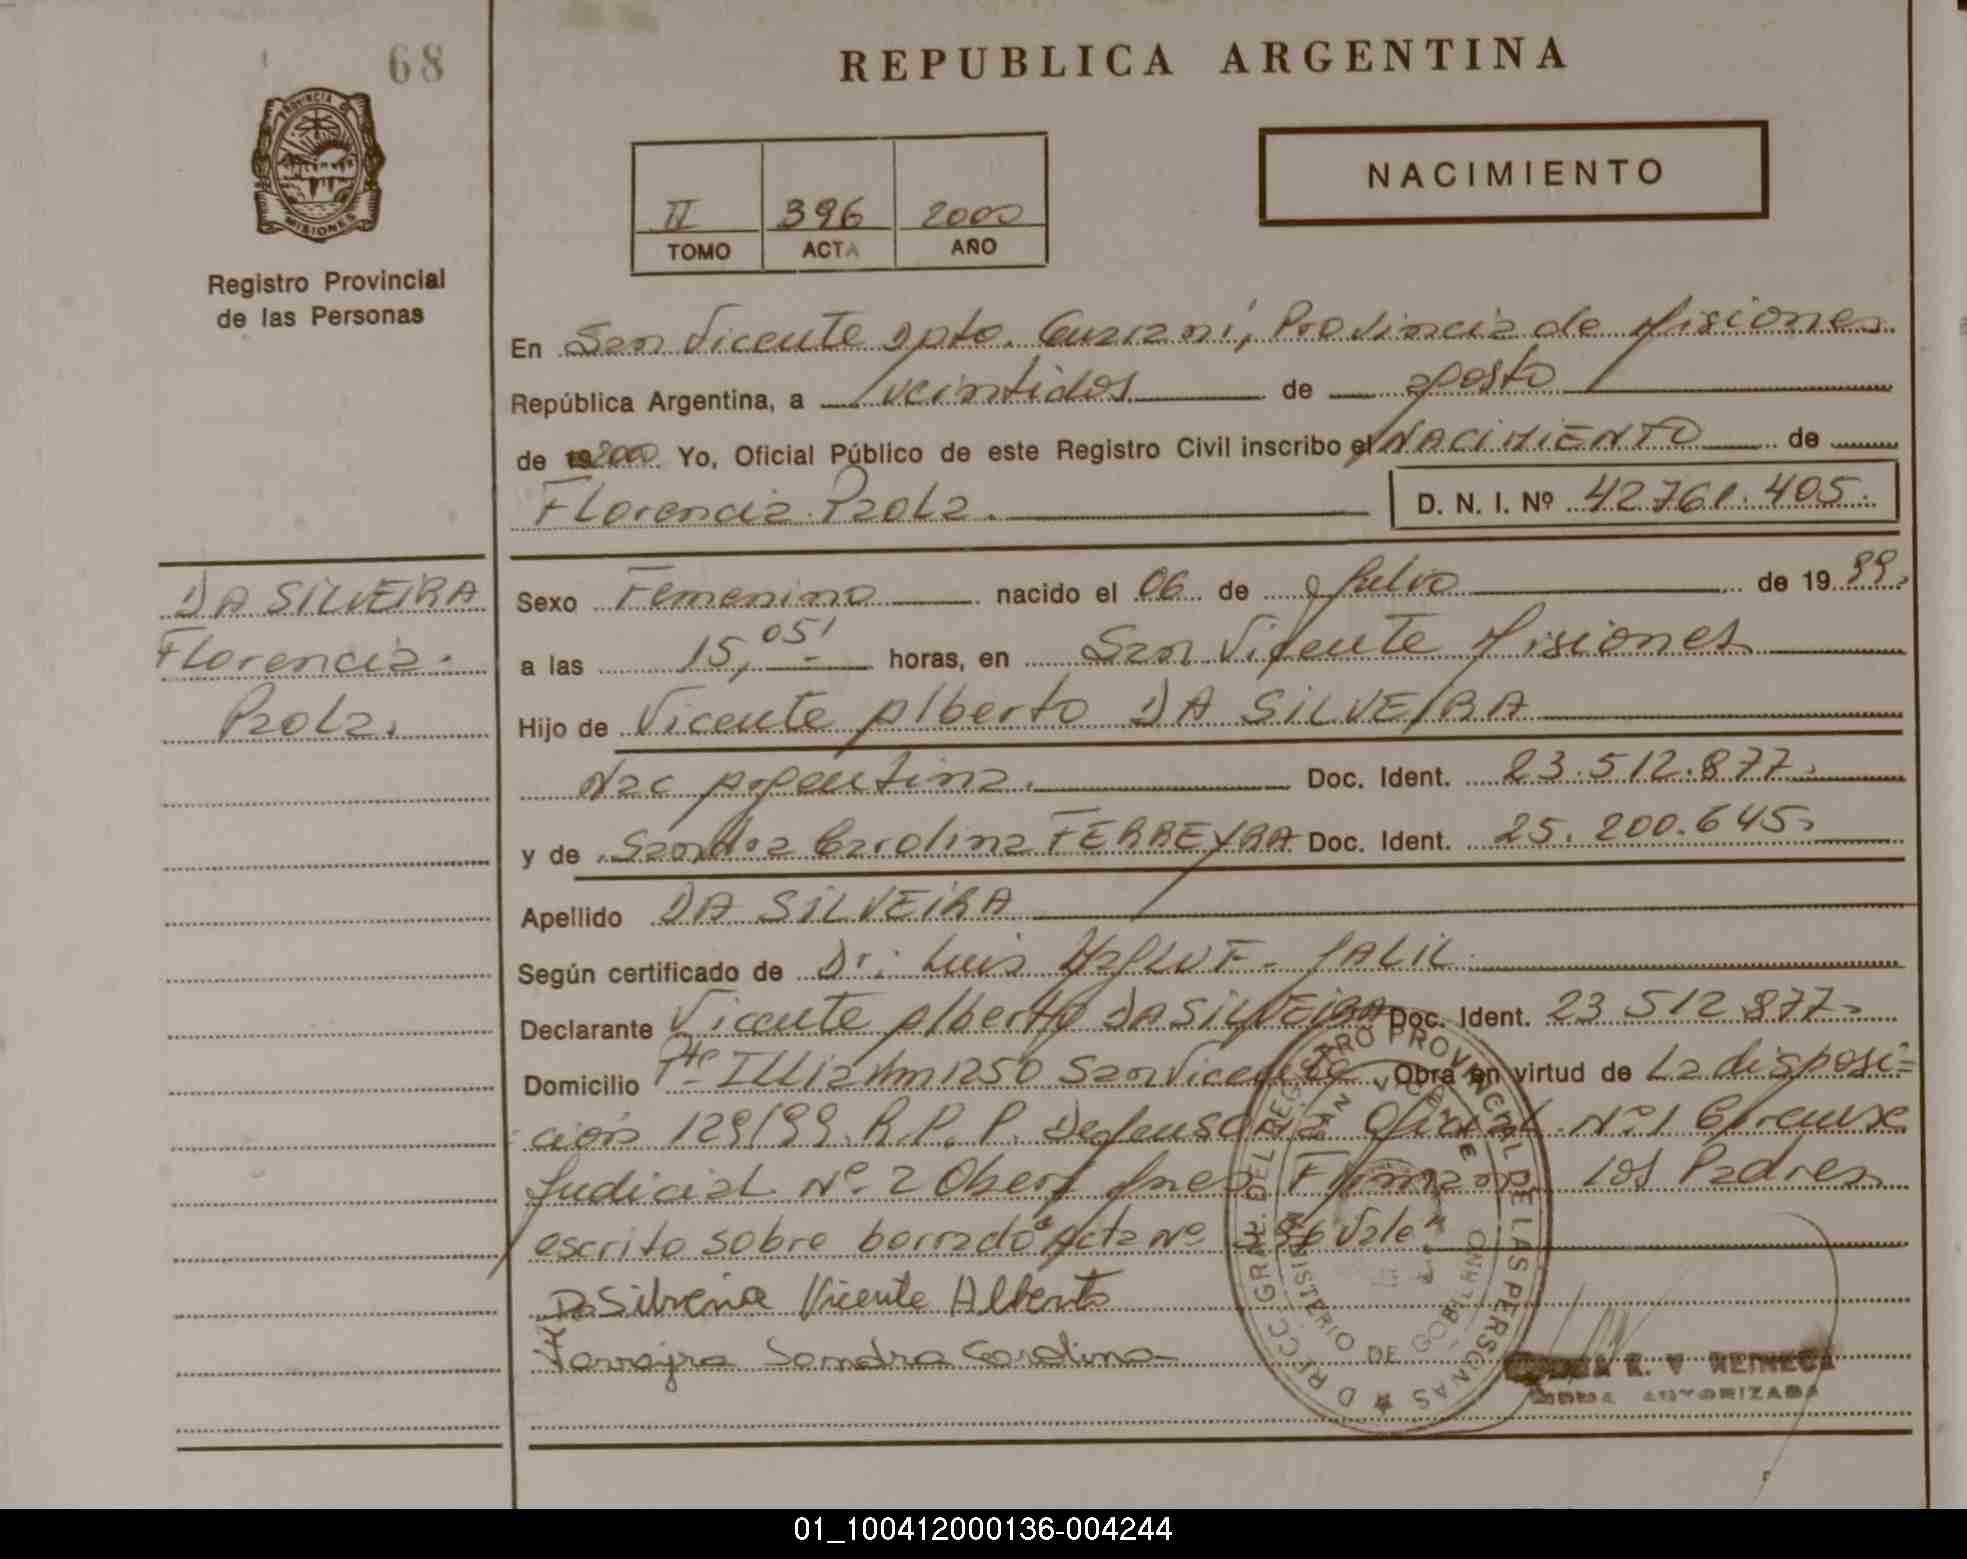 68
REPUBLICA ARGENTINA
PROVINCIA DE MISIONES
NACIMIENTO
II 396 2000
TOMO ACTA AÑO
Registro Provincial
de las Personas
En San Vicente Dpto. Guarani, Provincia de Misiones
República Argentina, a veintidos de agosto
de 2000 Yo, Oficial Público de este Registro Civil inscribo el NACIMIENTO de
Florencia Paola. D. N. I. Nº 42.761.405.
DA SILVEIRA
Florencia
Paola.
Sexo Femenino nacido el 06 de Julio de 19 99
a las 15,05' horas, en San Vicente Misiones
Hijo de Vicente Alberto DA SILVEIRA
Nac Argentina. Doc. Ident. 23.512.877
y de Sandra Carolina FERREYRA Doc. Ident. 25.200.645
Apellido DA SILVEIRA
Según certificado de Dr: Luis JALIL
Declarante Vicente Alberto DA SILVEIRA Doc. Ident. 23 512 877
Domicilio Pte Illia Km 1250 San Vicente Obra en virtud de La disposi-
ción 129/99 R.P.P. Defensoria Oficial Nº 1
Judicial Nº 2 Obera Mnes Firman los Padres
escrito sobre borrado "Acta Nº 396 Vale"
Da Silveira Vicente Alberto
Ferreyra Sandra Carolina
DIRECC GRAL. DEL REGISTRO PROVINCIAL DE LAS PERSONAS
SAN VICENTE
MINISTERIO DE GOBIERNO
R. V REINECK
FIRMA AUTORIZADA
01_100412000136-004244